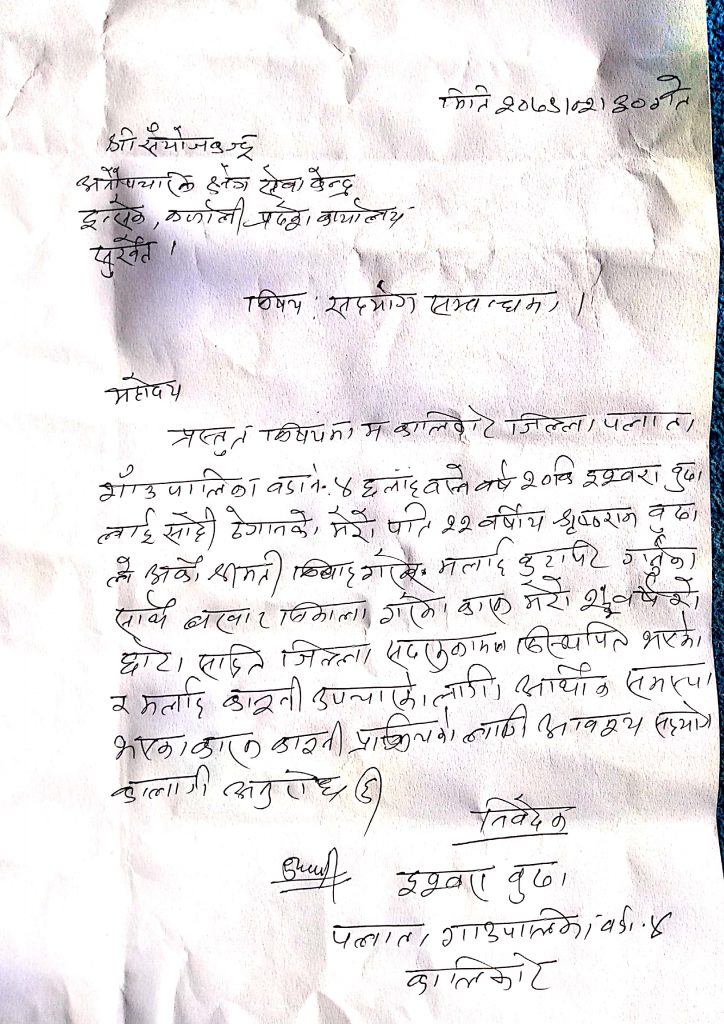 मिति २०७९।०२।३० गते
श्री संयोजकज्यू
अनौपचारिक क्षेत्र सेवा केन्द्र
इन्सेक, कर्णाली प्रदेश कार्यालय
सुर्खेत ।
विषय: सहयोग सम्बन्धमा ।
महोदय
प्रस्तुत विषयमा म कालिकोट जिल्ला पलाता
गाँउपालिका वडा नं. ४ बस्ने वर्ष २० कि इश्वरा वुढा
लाई सोही ठेगानाको मेरो पति २२ वर्षीय कृष्णराज वुढा
ले अर्को श्रीमती विवाह गरी मलाई कुटपिट गर्नुका
साथै घरबार विहिन गरेको कारण मेरो वर्षको
छोरा सहित जिल्ला सदरमुकाममा विस्थापित भएको
र मलाई कानूनी उपचारको लागी आर्थीक समस्या
भएका कारण कानूनी प्रक्रियाको लागी आवश्य सहयोग
कालागी अनुरोध छ
निवेदक
इश्वरा वुढा
पलाता गाउपालिका वडा ४
कालिकोट